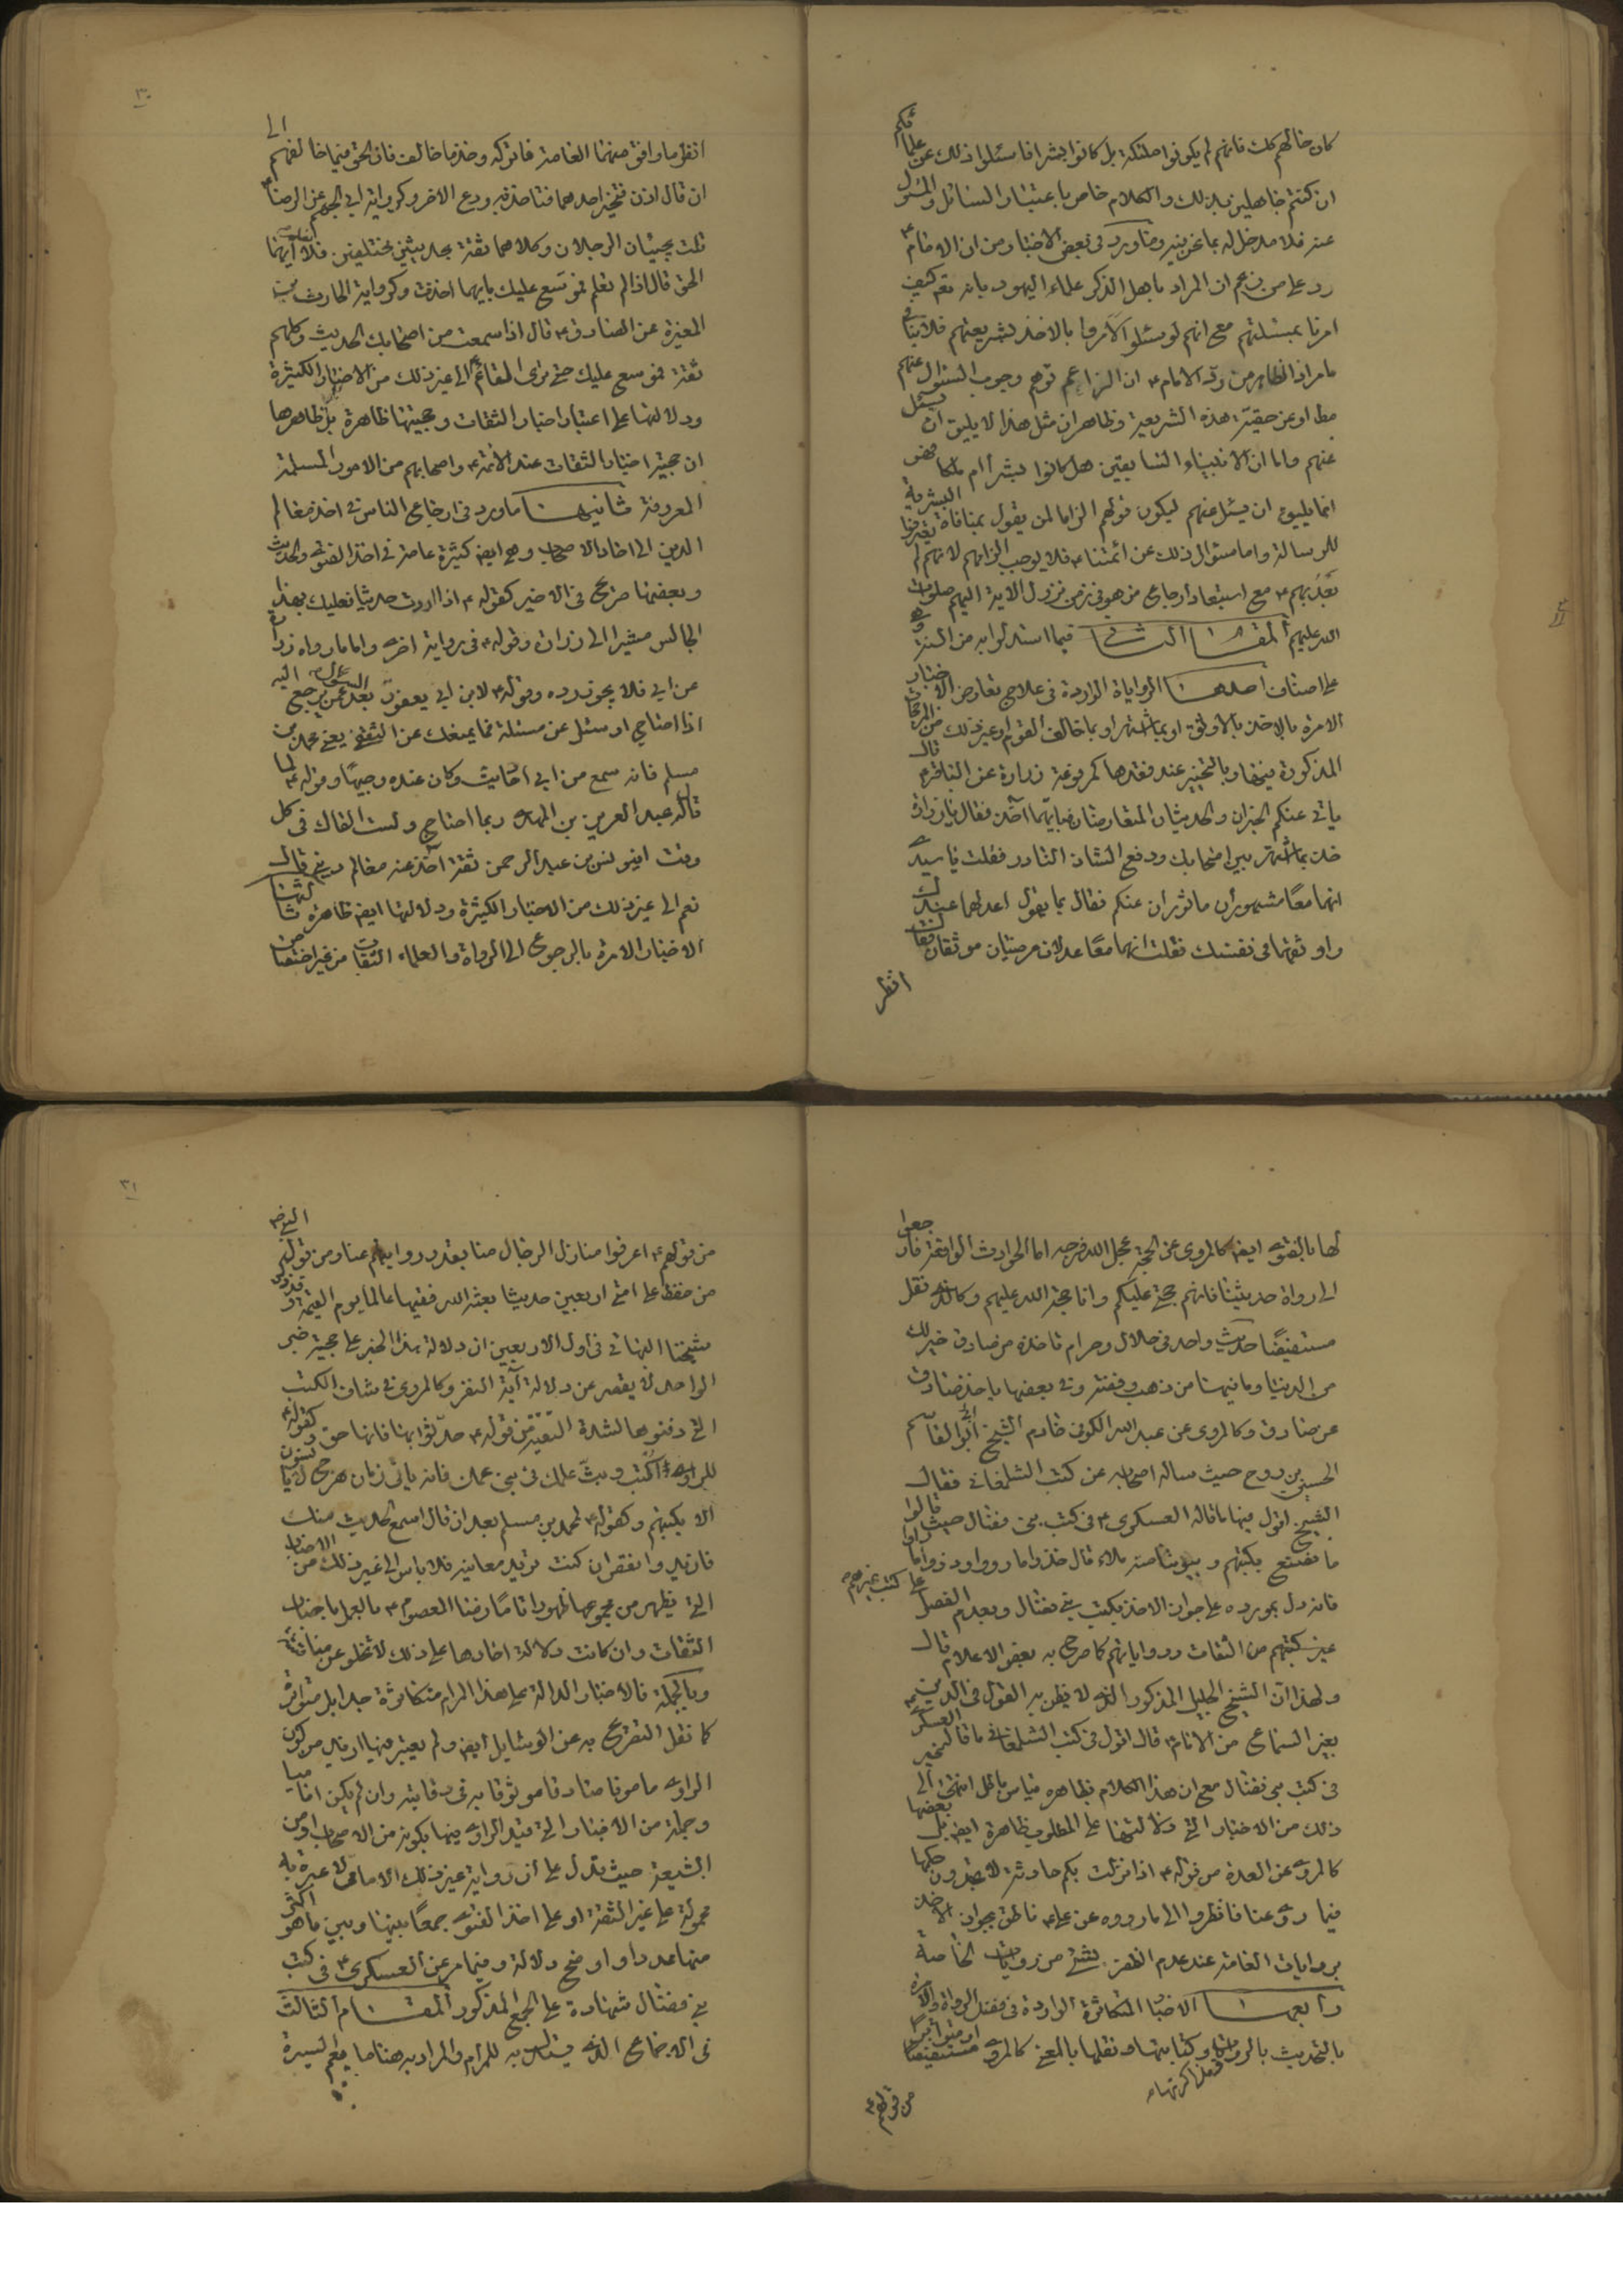 كان حالهم كك فانهم لم يكونوا ملئكة بل كانوا بشرا فاسئلوا ذلك عن علمائكم
ان كنتم جاهلين بذلك والكلام خاص باعتبار السائل والمسئول
عنه فلا مدخل له بما نحن فيه وما ورد في بعض الاخبار من ان الامام ع
رد على من زعم ان المراد باهل الذكر علماء اليهود بانه تع كيف
امرنا بمسئلتهم مع انهم لو سئلوا لأمروا بالاخذ بشريعتهم فلا ينافي
ما مر اذ الظاهر من رد الامام ع ان الزاعم توهم وجوب السئوال عنهم
مط او عن حقية هذه الشريعة وظاهر ان مثل هذا لا يليق ان يسئل
عنهم واما ان الانبياء السابقين هل كانوا بشرا أم ملكا فهو
انما يليق ان يسئل عنهم ليكون قولهم الزاما لمن يقول بمنافاة البشرية
للرسالة واما سئوال ذلك عن ائمتنا ع فلا يوجب الزامهم لانهم لم يعترفوا
بعد بهم ع مع استبعاد ارجاع من هو في زمن نزول الاية اليهم صلوات
الله عليهم المقام الثاني فيما استدلوا به من السنة وهي
على اصناف احدها الرواياة الواردة في علاج تعارض الاخبار
الامرة بالاخذ بالأوثق او بما اشتهر او بما خالف القوم او غير ذلك من المرجحات
المذكورة فيها وبالتخيير عند فقدها كمرفوعة زرارة عن الباقر ع قال
ياتي عنكم الخبران والحديثان المتعارضان فبايهما آخذ فقال يا زرارة
خذ بما اشتهر بين اصحابك ودع الشاذ النادر فقلت يا سيدي
انهما معًا مشهوران ماثوران عنكم فقال بما يقول اعدلهما عندك
واوثقهما في نفسك فقلت انهما معًا عدلان مرضيان موثقان فقال
انظر
٣٠
انظر ما وافق منهما العامة فاتركه وخذ ما خالف فان الحق فيما خالفهم الى
ان قال اذن فتخير احدهما فتاخذ به ودع الاخر وكرواية ابي الجهم عن الرضا ع
قلت يجيئان الرجلان وكلاهما ثقة بحديثين مختلفين فلا نعلم ايهما
الحق قال اذا لم تعلم فموسع عليك بايهما اخذت وكرواية الحارث بن
المغيرة عن الصادق ع قال اذا سمعت من اصحابك الحديث وكلهم
ثقة فموسع عليك حتى ترى القائم ع الى غير ذلك من الاخبار الكثيرة
ودلالتها على اعتبار اخبار الثقات وحجيتها ظاهرة بل ظاهرها
ان حجية اخبار الثقات عند الائمة ع واصحابهم من الامور المسلمة
المعروفة ثانيها ما ورد في ارجاع الناس في اخذ معالم
الدين الى احاد الاصحاب وهي ايضا كثيرة عامة في اخذ الفتوى والحديث
وبعضها صريح في الاخير كقوله ع اذا اردت حديثا فعليك بهذا
الجالس مشيرا الى زرارة وقوله ع في رواية اخرى واما ما رواه زرارة
عن ابي فلا يجوز رده وقوله ع لابن ابي يعفور بعد السئوال عمن يرجع اليه
اذا احتاج او سئل عن مسئلة فما يمنعك عن الثقفي يعني محمد بن
مسلم فانه سمع من ابي احاديث وكان عنده وجيهًا وقوله ع لما
قال له عبد العزيز بن المهتدي ربما احتاج ولست القاك في كل
وقت افيونس بن عبد الرحمن ثقة آخذ عنه معالم ديني قال
نعم الى غير ذلك من الاخبار الكثيرة ودلالتها ايضا ظاهرة ثالثها
الاخبار الامرة بالرجوع الى الرواة والعلماء الثقات من غير اختصاص
لها بالفتوى ايضا كالمروي عن الحجة عجل الله فرجه اما الحوادث الواقعة فارجعوا
الى رواة حديثنا فانهم حجتي عليكم وانا حجة الله عليهم وكالذي نقل
مستفيضًا حديث واحد في حلال وحرام تاخذه من صادق خير لك
من الدنيا وما فيها من ذهب وفضة وفي بعضها ياخذ صادق
عن صادق وكالمروي عن عبد الله الكوفي خادم الشيخ أبي القاسم
الحسين بن روح حيث ساله اصحابه عن كتب الشلمغاني فقال
الشيخ اقول فيها ما قاله العسكري ع في كتب بني فضال حيث قالوا
ما نصنع بكتبهم وبيوتنا منه ملاء قال خذوا ما رووا وذروا ما راوا
فانه دل بمورده على جواز الاخذ بكتب بني فضال وبعدم الفصل على كتب غيرهم
غير كتبهم من الثقات ورواياتهم كما صرح به بعض الاعلام قال
ولهذا ان الشيخ الجليل المذكور الذي لا يظن به القول في الدين
بغير السماع من الامام ع قال اقول في كتب الشلمغاني ما قاله العسكري ع
في كتب بني فضال مع ان هذا الكلام بظاهره قياس باطل انتهى الى غير
ذلك من الاخبار التي دلالتها على المطلوب ظاهرة ايضا بل بعضها
كالمروي عن العدة من قوله ع اذا نزلت بكم حادثة لا تجدون حكمها
فيما روي عنا فانظروا الى ما رووه عن علي ع ناطق بجواز الاخذ
بروايات العامة عند عدم الظفر بشئ من روايات الخاصة
رابعها الاخبار المتكاثرة الواردة في فضل الرواة والامرة
بالتحديث بالروايات وكتابتها ونقلها بالمعنى كالمروي مستفيضا او متواترا
من قولهم ع
٣١
من قولهم ع اعرفوا منازل الرجال منا بقدر روايتهم عنا ومن قوله النبي ص
من حفظ على امتي اربعين حديثا بعثه الله فقيها عالما يوم القيمة وقد ذكر
شيخنا البهائي في اول الاربعين ان دلالة هذا الخبر على حجية خبر
الواحد لا يقصر عن دلالة آية النفر وكالمروي في شان الكتب
التي دفنوها لشدة التقية من قوله ع حدثوا بها فانها حق وكقوله ع
للراوي اكتب وبثّ علمك في بني عمك فانه ياتي زمان هرج لا يانسون
الا بكتبهم وكقوله ع لمحمد بن مسلم بعد ان قال اسمع الحديث منك
فازيد وانقص ان كنت تريد معانيه فلا باس الى غير ذلك من الاخبار
التي يظهر من مجموعها ظهورا تامًا رضا المعصوم ع بالعمل باخبار
الثقات وان كانت دلالة احادها على ذلك لا تخلو عن مناقشة
وبالجملة فالاخبار الدالة على هذا المرام متكاثرة جدا بل متواترة
كما نقل التصريح به عن الوسايل ايضا ولم يعتبر فيها ازيد من كون
الراوي مامونا صادقا موثوقا به في روايته وان لم يكن اماميا
وجملة من الاخبار التي قيد الراوي فيها بكونه من الاصحاب او من
الشيعة حيث تدل على ان رواية غير ذلك الامامي لا عبرة به
محمولة على غير الثقة او على اخذ الفتوى جمعًا بينها وبين ما هو اكثر
منها عددا واوضح دلالة وفيما مر عن العسكري ع في كتب
بني فضال شهادة على الجمع المذكور المقام الثالث
في الاجماع الذي يستدل به للمرام والمراد به هنا ما يعم السيرة